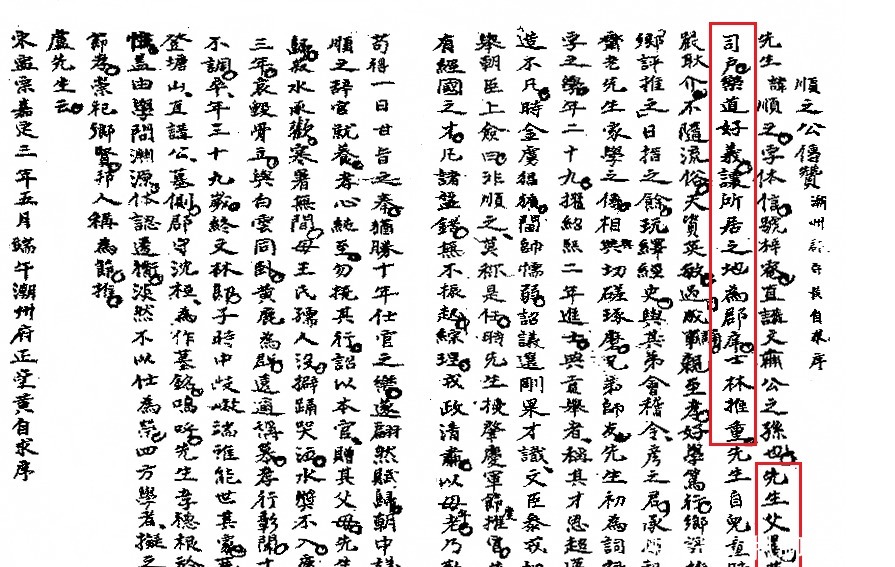 順之公傳贊 潮州許百長自求序
先生諱順之字休信號梓齋直議文肅公之孫也先生父
司戶樂道好義讓所居之地為郡庠士林推重先生自兒童時
嚴耿介不隨流俗天資英敏過成事親至孝好學篤行鄉
鄉評推之日指之餘玩繹經史與其弟會稽令彥之君家
齋老先生家學之傳相與切磋琢磨兄弟師友先生初為詞
孚之學年二十九擢紹熙二年進士與貢舉者稱其才思超邁
造不凡時金虜猖獗閫帥懦弱詔議選剛果才識文臣
舉朝臣上僉曰非順之莫祢是任時先生授肇慶軍節度推官
有經國之才凡諸盤錯無不振起綜理戎政清肅以母年老乃
苟得一日甘旨之奉猶勝十年仕官之樂遂翻然賦歸朝中
順之辭官就養孝心純至勿撓其行詔以本官贈其父母先生
歸菽水承歡寒暑無間母王氏孺人沒擗踊哭泣水漿不入
三年哀毀骨立與白雲同臥黃鹿為群遠邇稱慕孝行彰聞
不調卒年三十九歲終文林郎子時中岐嶷端雅能世其家
登塘山直議公墓側郡守沈桓為作墓銘嗚呼先生孝德根於
性蓋由學問淵源体認邃衛淡然不以仕為榮四方學者擬之
節孝崇祀鄉賢邦人稱為節推
盧先生云
宋寧宗嘉定三年五月端午潮州府正堂黃自求序